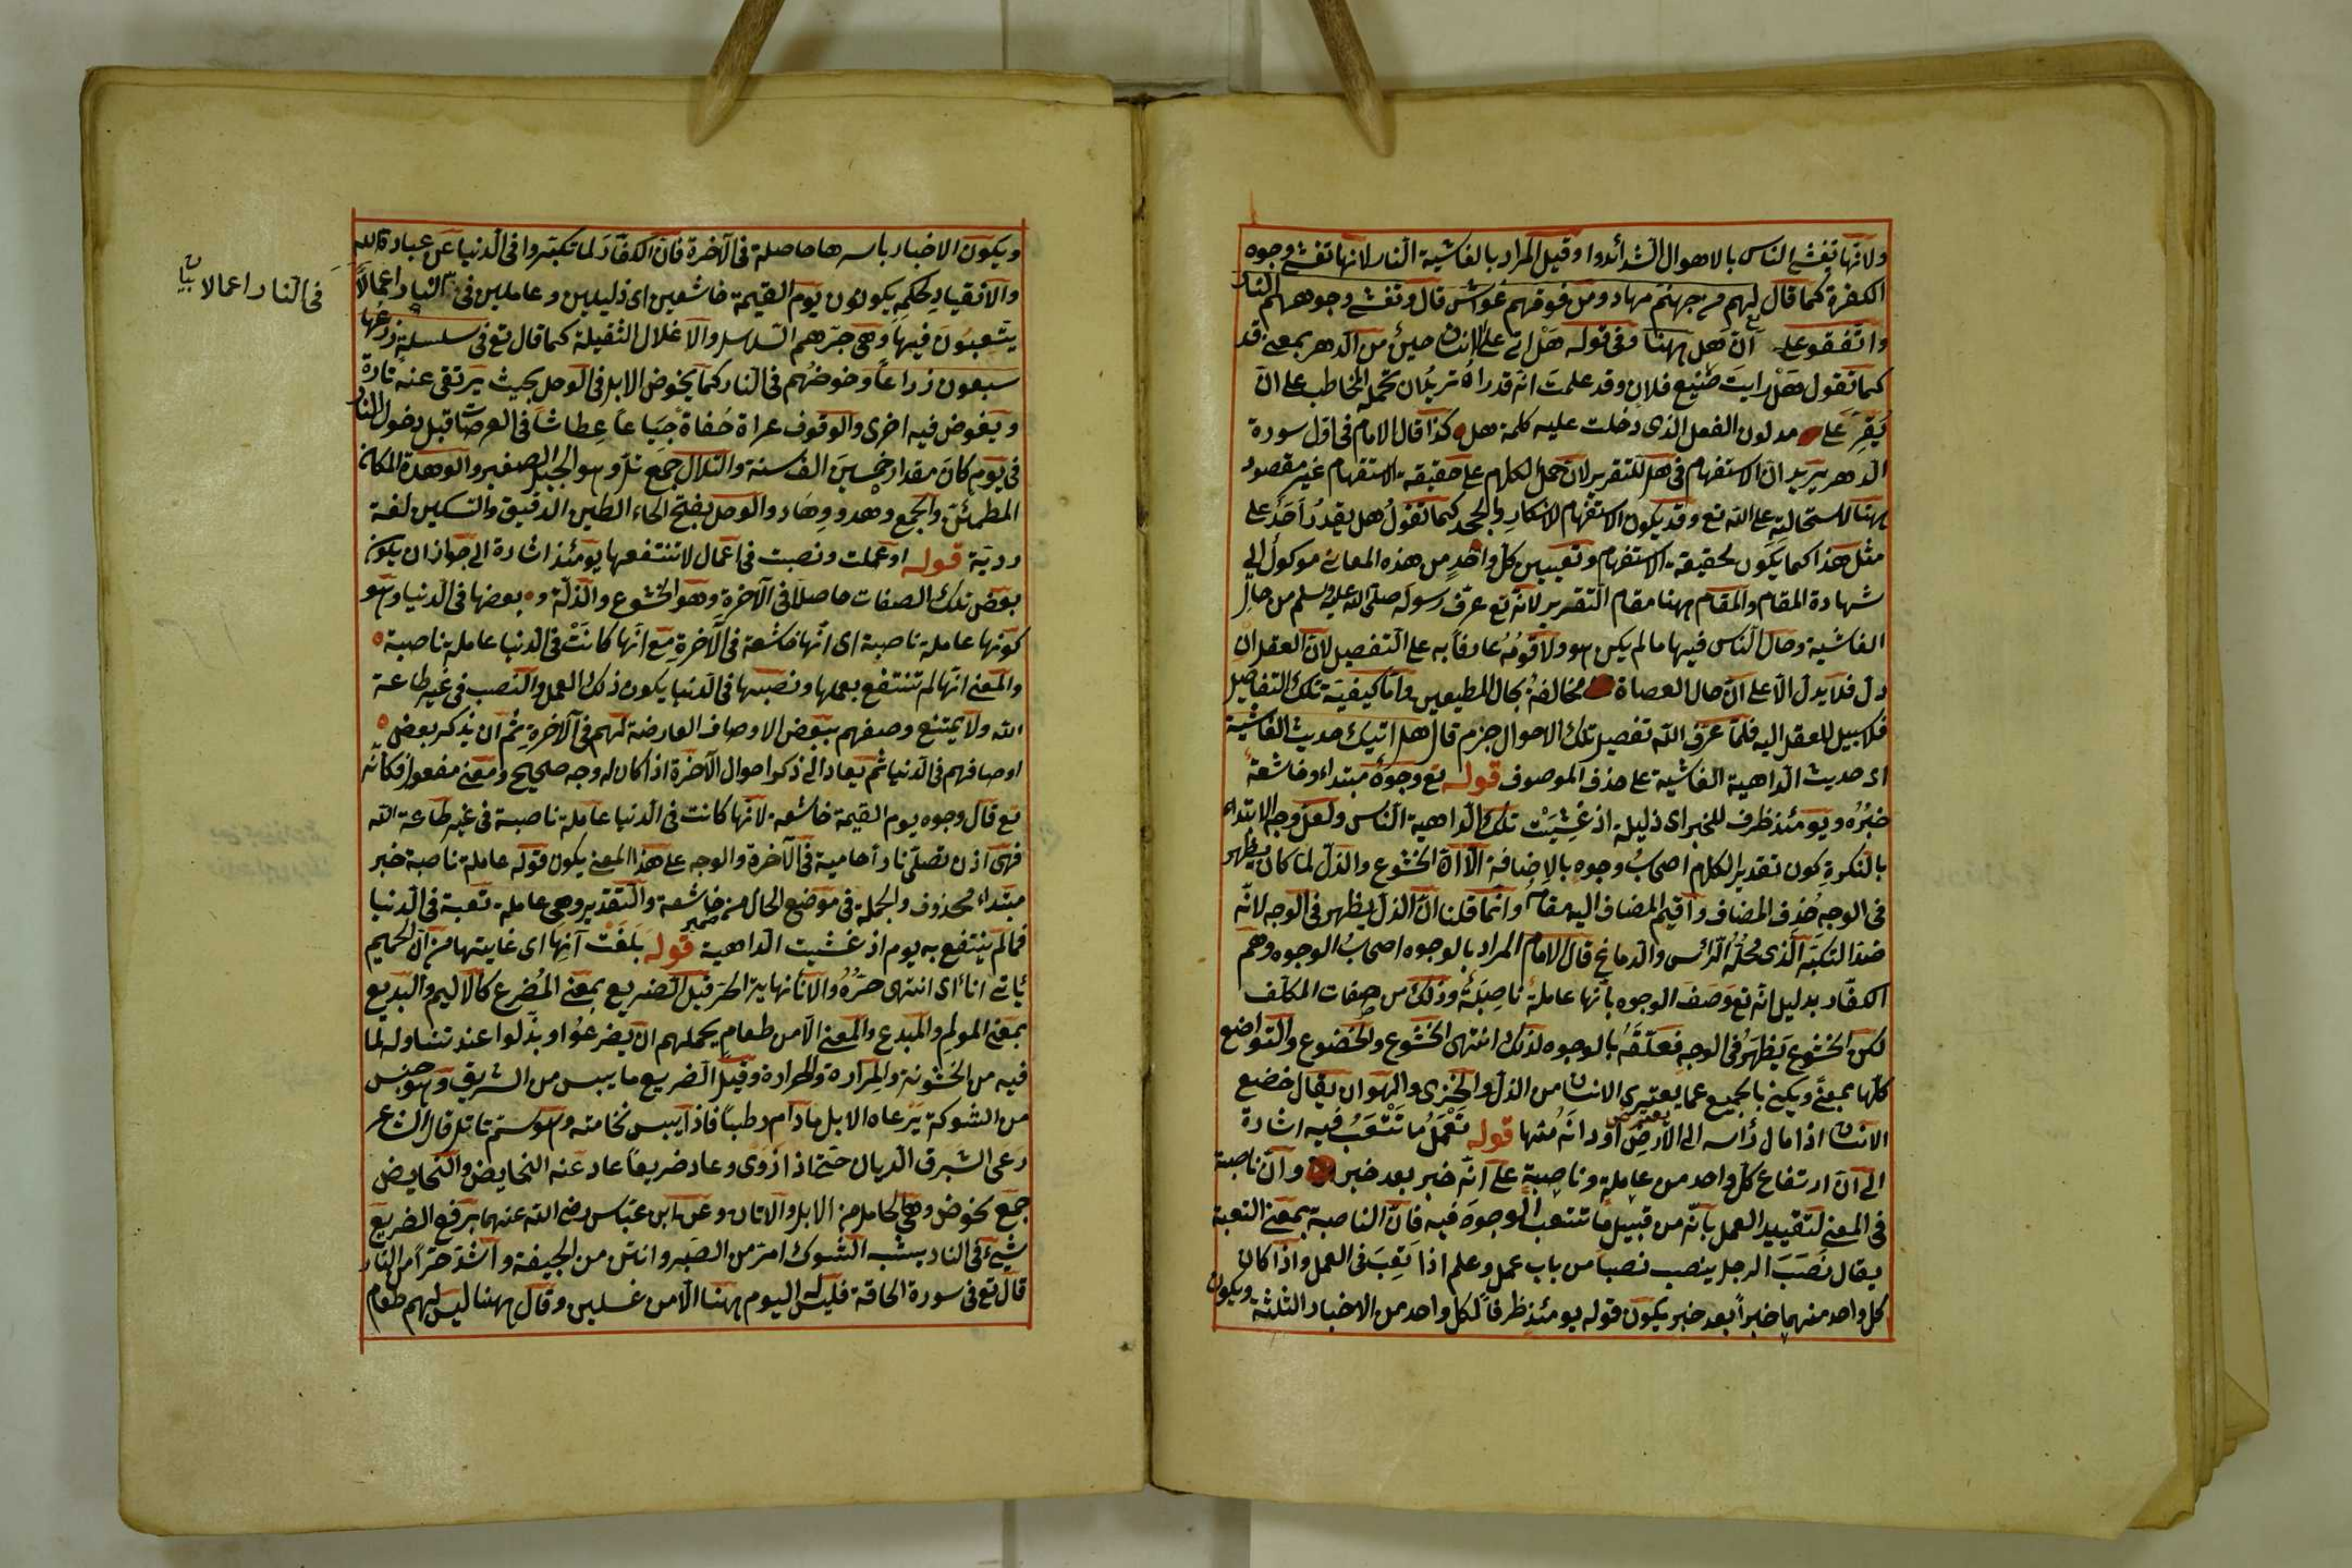 ولانها تغشى الناس بالاهوال الشدائدوا وقيل المراد بالغاشية النار لانها تغشى وجوه
الكفرة كما قال لهم من جهنم مهاد ومن فوقهم غواش قال وتغشى وجوههم النار
واتفقوا على أن هل ههنا وفى قوله تع هل اتى على الانسان حين من الدهر بمعنى قد
كما تقول هل رايت صنيع فلان وقد علمت انه قد راه تريد ان تحمل المخاطب على ان
يقر على مدلول الفعل الذى دخلت عليه كلمة هل كذا قال الامام فى اول سورة
الدهر يريد ان الاستفهام فى هل للتقرير لان حمل الكلام على حقيقة الاستفهام غير مقصود
ههنا لاستحالته على الله تع وقد يكون الاستفهام للانكار والجحد كما تقول هل يقدر احد على
مثل هذا كما يكون لحقيقة الاستفهام وتعيين كل واحد من هذه المعانى موكول الى
شهادة المقام والمقام ههنا مقام التقرير لانه تع عرف رسوله صلى الله عليه وسلم من حال
الغاشية وحال الناس فيها ما لم يكن هو ولا قومه عارفا به على التفصيل لان العقل ان
دل فلا يدل الا على ان حال العصاة مخالفة بحال المطيعين واما كيفية تلك التفاصيل
فلا سبيل للعقل اليه فلما عرف الله تفصيل تلك الاحوال جزم قال هل اتيك حديث الغاشية
اى حديث الداهية الغاشية على حذف الموصوف قوله تع وجوه مبتداء وخاشعة
خبره ويومئذ ظرف للخبر اى ذليلة اذ غشيت تلك الداهية الناس ولعل وجه الابتداء
بالنكرة كون تقدير الكلام اصحاب وجوه بالاضافة الا ان الخشوع والذل لما كان يظهر
فى الوجه حذف المضاف واقيم المضاف اليه مقامه وانما قلنا ان الذل يظهر فى الوجه لانه
ضد التكبر الذى محله الرائس والدماغ قال الامام المراد بالوجوه اصحاب الوجوه وهم
الكفار بدليل انه تع وصف الوجوه بانها عاملة ناصبة وذلك من صفات المكلف
لكن الخشوع يظهر فى الوجه فعلقه بالوجوه لذلك انتهى الخشوع والخضوع والتواضع
كلها بمعنى ويكنى بالجميع عما يعترى الانسان من الذل والخزى والهوان يقال خضع
الانسان اذا مال رأسه الى الارض او دانه منها قوله تعمل ما تتعب فيه اشارة
الى ان ارتفاع كل واحد من عاملة وناصبة على انه خبر بعد خبر وان ناصبة
فى المعنى لتقييد العمل بانه من قبيل ما تتعب الوجوه فيه فان الناصبة بمعنى التعبة
يقال نصب الرجل ينصب نصبا من باب عمل وعلم اذا تعب فى العمل واذا كان
كل واحد منهما خبرا بعد خبر يكون قوله يومئذ ظرفا لكل واحد من الاخبار الثلثة ويكون
ويكون الاخبار باسرها حاصلة فى الآخرة فان الكفار لما تكبروا فى الدنيا عن عبادة الله
والانقياد لحكمه يكونون يوم القيمة خاشعين اى ذليلين وعاملين فى النار اعمالا
فى النار اعمالا بيان
يتعبون فيها وهى جرهم السلاسل والاغلال الثقيلة كما قال تع فى سلسلة ذرعها
سبعون ذراعا وخوضهم فى النار كما يخوض الابل فى الوحل بحيث يرتقى عنه تارة
ويغوض فيه اخرى والوقوف عراة حفاة جياعا عطاشا فى العرصات قبل دخول النار
فى يوم كان مقداره خمسين الف سنة والتلال جمع تل وهو الجبل الصغير والوهدة المكان
المطمئن والجمع وهد ووهاد والوحل بفتح الحاء الطين الرقيق والتسكين لغة
ردية قوله او عملت ونصبت فى اعمال لا تنتفعها يومئذ اشارة الى جواز ان يكون
بعض تلك الصفات حاصلا فى الآخرة وهو الخشوع والذلة و بعضها فى الدنيا وهو
كونها عاملة ناصبة اى انها خاشعة فى الآخرة مع انها كانت فى الدنيا عاملة ناصبة
والمعنى انها لم تنتفع بعملها ونصبها فى الدنيا يكون ذلك العمل والنصب فى غير طاعة
الله ولا يمتنع وصفهم ببعض الاوصاف العارضة لهم فى الآخرة ثم ان يذكر بعض
اوصافهم فى الدنيا ثم يعاد الى ذكر احوال الآخرة اذا كان له وجه صحيح ومعنى مفعول فكانه
تع قال وجوه يوم القيمة خاشعة لانها كانت فى الدنيا عاملة ناصبة فى غير طاعة الله
فهى اذن تصلى نارا حامية فى الآخرة والوجه على هذا المعنى يكون قوله عاملة ناصبة خبر
مبتداء محذوف والجملة فى موضع الحال من ضمير خاشعة والتقدير وهى عاملة تعبة فى الدنيا
فما لم ينتفع به يوم اذ غشيت الداهية قوله بلغت آنها اى غايتها من ان الحميم
ياتى انا اى انتهى حره والانا نهاية الحر قيل الضريع بمعنى المضرع كالاليم والبديع
بمعنى المولم والمبدع والمعنى الا من طعام يحملهم ان يضرعوا ويذلوا عند تناوله لما
فيه من الخشونة والمرارة والحرارة وقيل الضريع ما يبس من الشبرق وهو جنس
من الشوكة يرعاه الابل ما دام رطبا فاذا يبس تخامته وهو سم قاتل قال الشاعر
رعى الشبرق الريان حتى اذا ذوى وعاد ضريعا عاد عنه النحايض والنحايض
جمع نحوض وهى الحامل من الابل والاتان وعن ابن عباس رضى الله عنهما يرفع الضريع
شىء فى النار يشبه الشوك امر من الصبر وانتن من الجيفة واشد حرا من النار
قال تع فى سورة الحاقة فليس له اليوم ههنا الا من غسلين وقال ههنا ليس لهم طعام